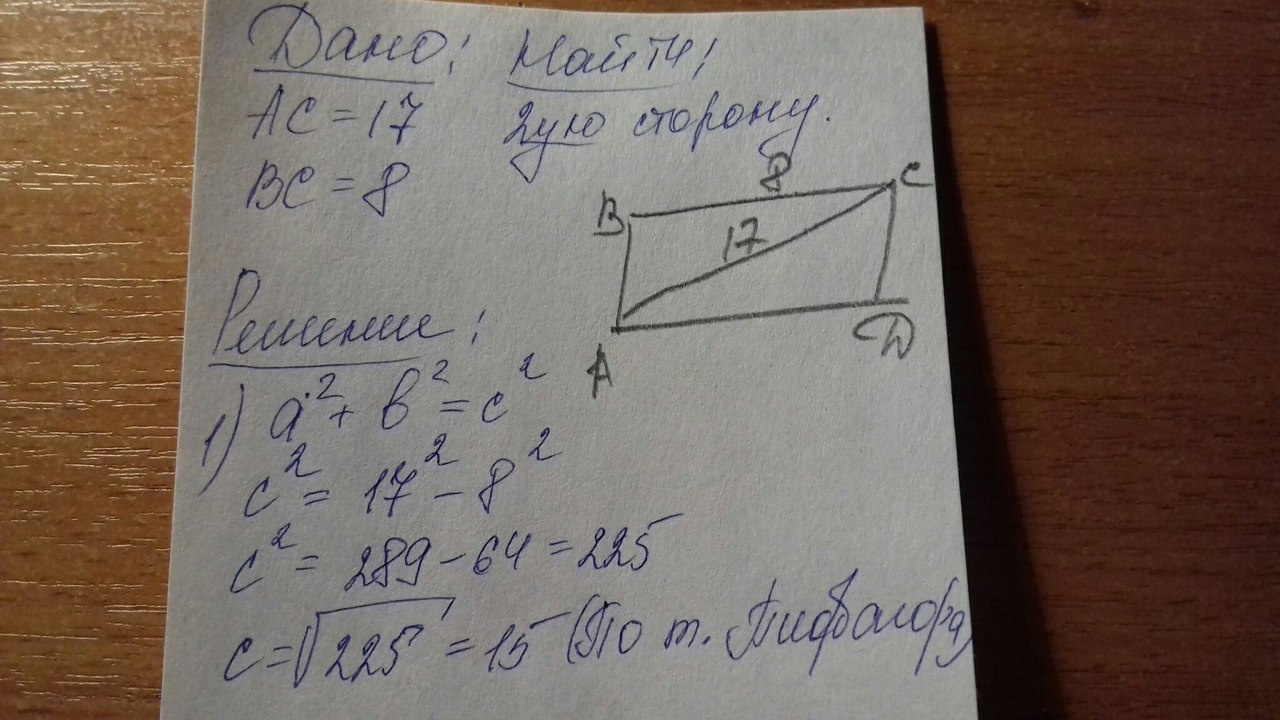 Дано: Найти:
AC = 17 2ую сторону.
BC = 8
8
B C
17
A D
Решение:
1) a² + b² = c²
c² = 17² - 8²
c² = 289 - 64 = 225
c = √225 = 15 (По т. Пифагора)